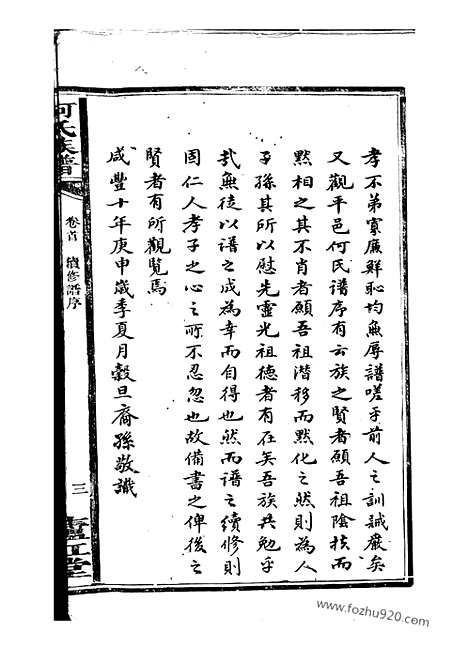 孝不弟寡廉鮮恥均無辱譜嗟乎前人之訓誡嚴矣
又觀平邑何氏譜序有云族之賢者願吾祖陰扶而
黙相之其不肖者願吾祖潛移而黙化之然則為人
子孫其所以慰先靈光祖德者有在矣吾族共勉乎
㢤無徒以譜之成為幸而自得也然而譜之續修則
固仁人孝子之心之所不忍忽也故備書之俾後之
賢者有所觀覽焉
咸豐十年庚申歲季夏月穀旦裔孫敬識
何氏族譜
卷首 續修譜序
三
廬江堂
www.fozhu920.com